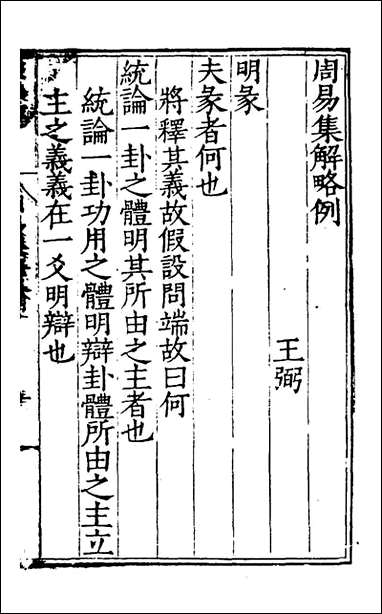 周易集解略例
王弼
明彖
夫彖者何也
將釋其義故假設問端故曰何
統論一卦之體明其所由之主者也
統論一卦功用之體明辯卦體所由之主立
主之義義在一爻明辯也